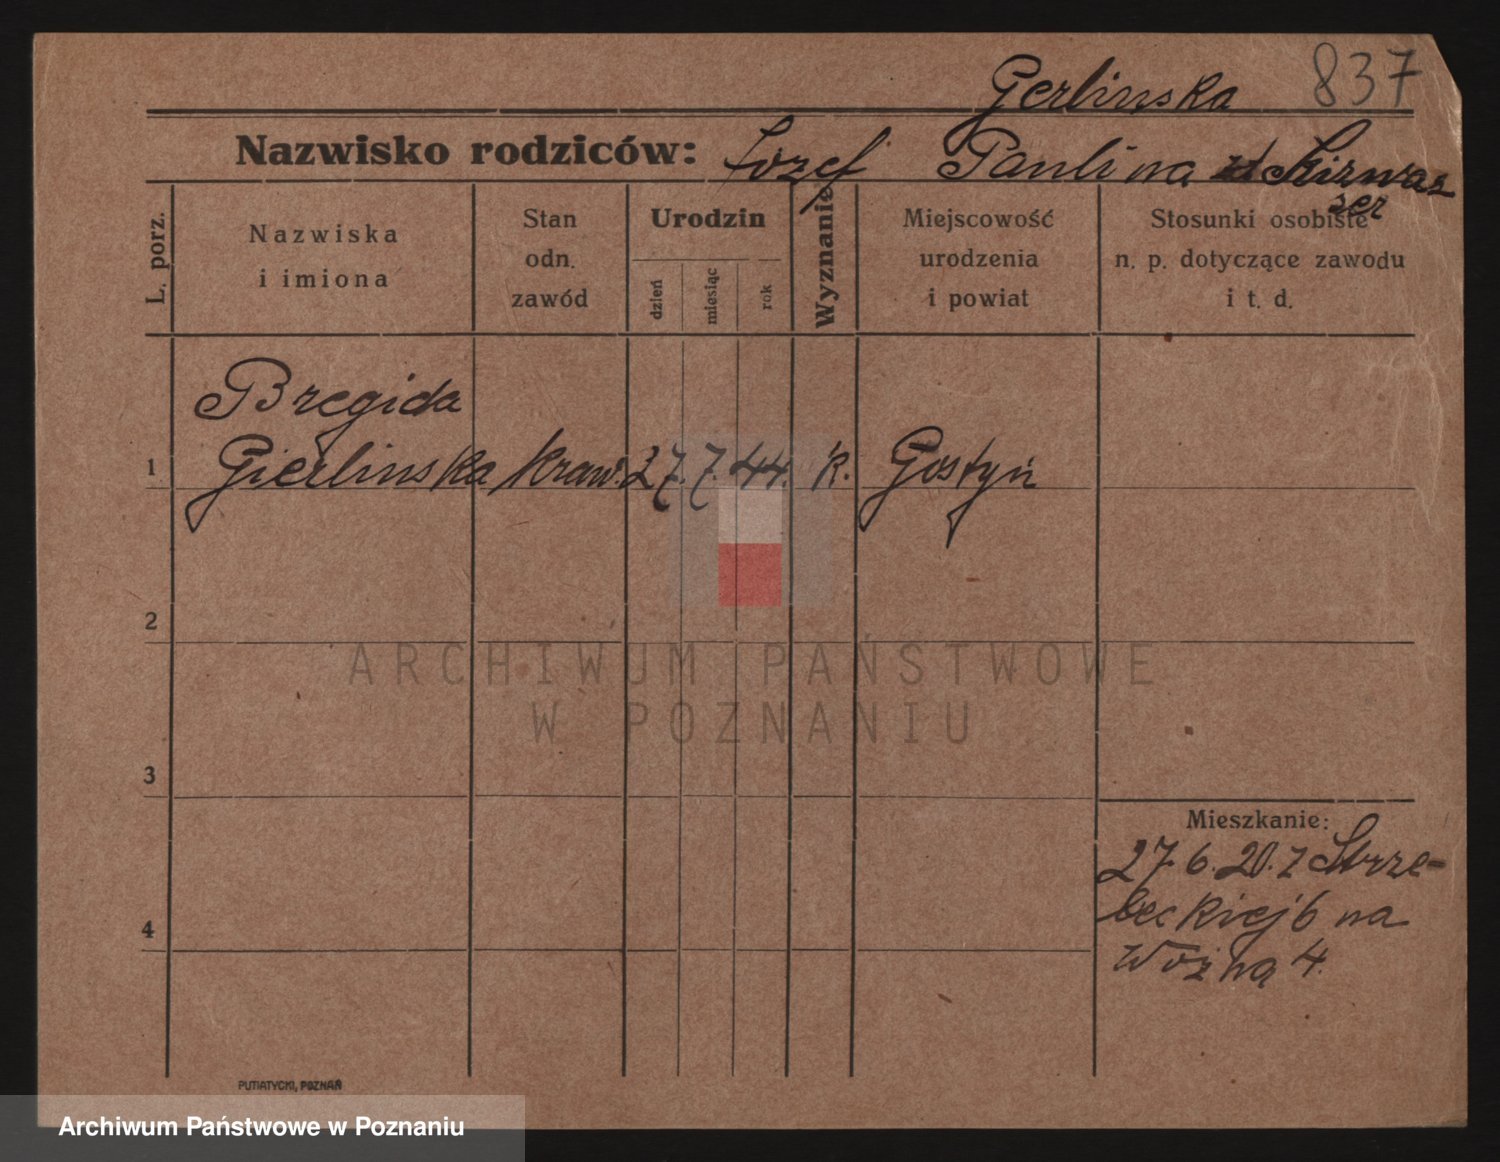 Gerlinska 837
Nazwisko rodziców: Józef Paulina
L. porz.
Nazwiska i imiona
Stan odn. zawód
Urodzin
dzień miesiąc rok
Wyznanie
Miejscowość urodzenia i powiat
Stosunki osobiste n. p. dotyczące zawodu i t. d.
Bregida
1 Gierlinska kraw. 27. 7. 44. k. Gostyń
2
ARCHIWUM PAŃSTWOWE
W POZNANIU
3
Mieszkanie:
27. 6. 20. z Strze-
leckiej 6 na
4
Woźną 4.
PUTIATYCKI, POZNAŃ
Archiwum Państwowe w Poznaniu